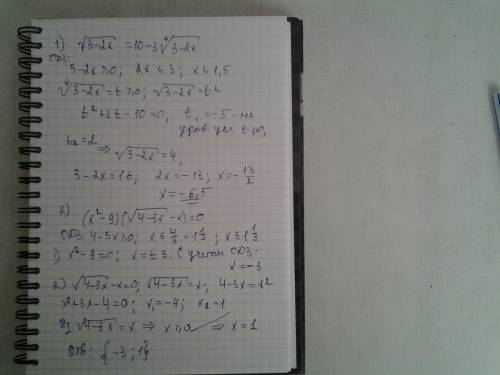 1) √3-2x = 10-3 ∜3-2x
ОДЗ:
3-2x≥0; 2x≤3; x≤1,5
∜3-2x = t ≥0; √3-2x = t²
t²+3t-10=0; t₁=-5 - не
удов. усл. t≥0,
t₂=2
⇒ √3-2x = 4;
3-2x=16; 2x=-13; x=-13/2
x=-6,5
2) (x²-9)(√4-3x -x)=0
ОДЗ: 4-3x≥0; x≤4/3=1 1/3; x≤1 1/3
1) x²-9=0; x=±3. С учётом ОДЗ:
x=-3
2) √4-3x -x=0; √4-3x =x; 4-3x=x²
x²+3x-4=0; x₁=-4; x₂=1
Из √4-3x =x ⇒ x≥0 ⇒ x=1
Отв: {-3; 1}